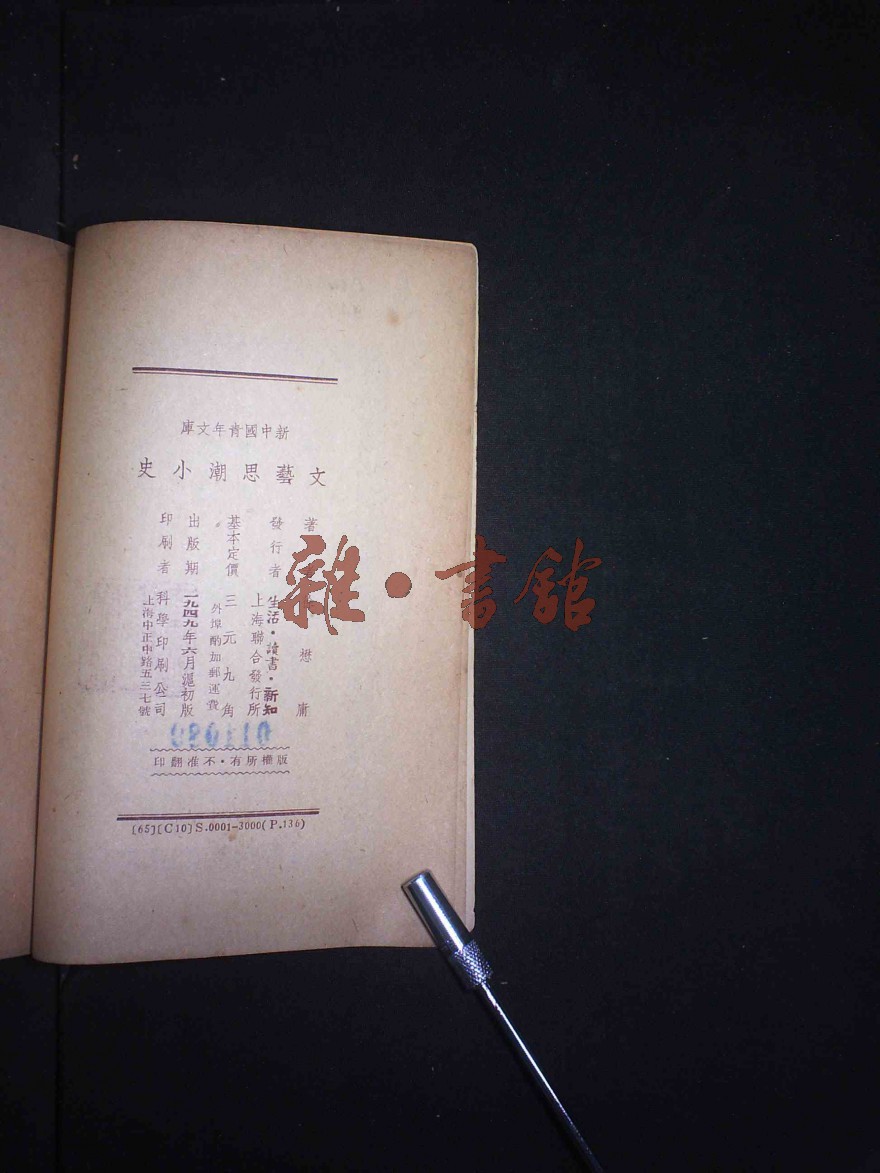 新中國青年文庫
文藝思潮小史
著
懋庸
發行者 生活·讀書·新知
上海聯合發行所
基本定價 三元九角
外埠酌加郵運費
出版期 一九四九年六月滬初版
印刷者 科學印刷公司
上海中正中路五三七號
版權所有·不准翻印
[65][C10]S.0001-3000(P.136)
雜·書館